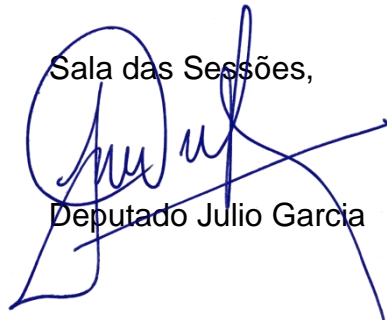 Sala das Sessões,
Deputado Julio Garcia